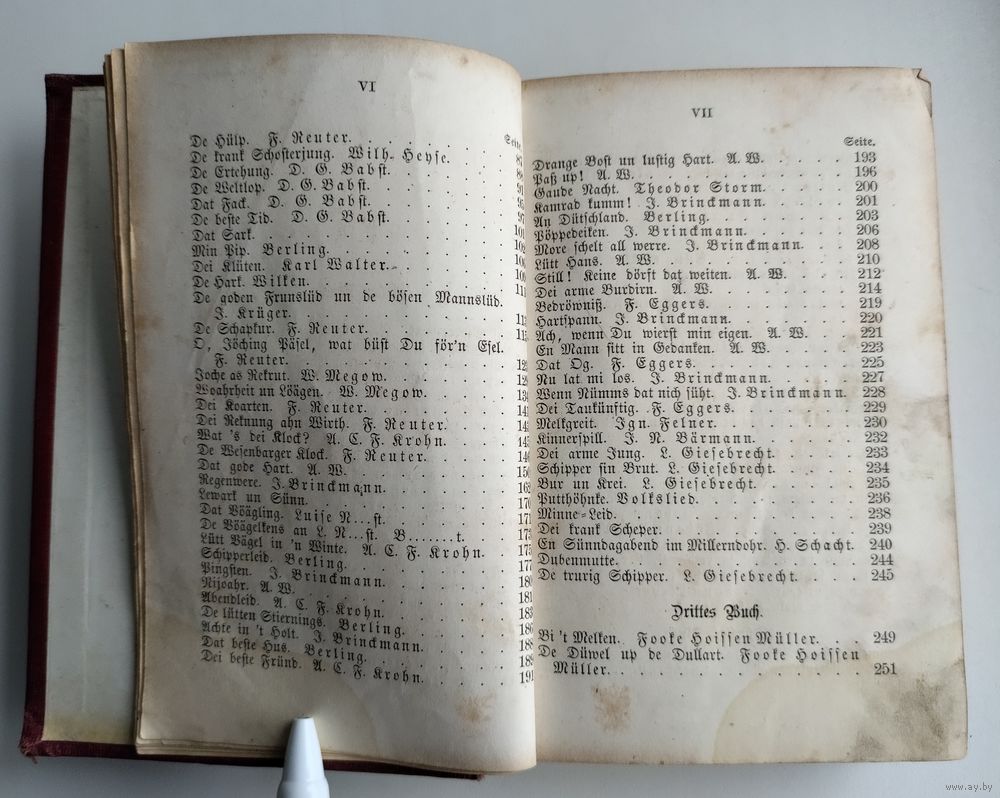 VI
Seite.
De Hülp. F. Reuter.
De krank Schosterjung. Wilh. Heyse.
De Ertehung. D. G. Babst.
De Weltlop. D. G. Babst.
Dat Fack. D. G. Babst.
De beste Tid. D. G. Babst.
Dat Sark.
Min Pip. Berling.
Dei Klüten. Karl Walter.
De Hark. Wilken.
De goden Frunslüd un de bösen Mannslüd.
J. Krüger.
De Schapkur. F. Reuter.
O, Jöching Päsel, wat büst Du för'n Esel.
F. Reuter.
Joche as Rekrut. W. Megow.
Woahrheit un Löägen. W. Megow.
Dei Koarten. F. Reuter.
Dei Reknung ahn Wirth. F. Reuter.
Wat 's dei Klock? A. C. F. Krohn.
De Wesenbarger Klock. F. Reuter.
Dat gode Hart. A. W.
Regenwere. J. Brinckmann.
Lewark un Sünn.
Dat Vöägling. Luise N...st.
De Vöägelkens an L. N...st. B.......t.
Lütt Vägel in 'n Winte. A. C. F. Krohn.
Schipperleid. Berling.
Pingsten. J. Brinckmann.
Nijoahr. A. W.
Abendleid. A. C. F. Krohn.
De lütten Stiernings. Berling.
Achte in 't Holt. J. Brinckmann.
Dat beste Hus. Berling.
Dei beste Fründ. A. C. F. Krohn. 191
VII
Seite.
Drange Bost un lustig Hart. A. W. 193
Paß up! A. W. 196
Gaude Nacht. Theodor Storm. 200
Kamrad kumm! J. Brinckmann. 201
An Dütschland. Berling. 203
Pöppedeiken. J. Brinckmann. 206
More schelt all werre. J. Brinckmann. 208
Lütt Hans. A. W. 210
Still! Keine dörft dat weiten. A. W. 212
Dei arme Burdirn. A. W. 214
Bedröwniß. F. Eggers. 219
Hartspann. J. Brinckmann. 220
Ach, wenn Du wierst min eigen. A. W. 221
En Mann sitt in Gedanken. A. W. 223
Dat Og. F. Eggers. 225
Nu lat mi los. J. Brinckmann. 227
Wenn Nümms dat nich süht. J. Brinckmann. 228
Dei Taukünftig. F. Eggers. 229
Melkgreit. Ign. Felner. 230
Kinnerspill. J. N. Bärmann. 232
Dei arme Jung. L. Giesebrecht. 233
Schipper sin Brut. L. Giesebrecht. 234
Bur un Krei. L. Giesebrecht. 235
Putthöhnke. Volkslied. 236
Minne-Leid. 238
Dei krank Scheper. 239
En Sünndagabend im Millerndohr. H. Schacht. 240
Dubenmutte. 244
De trurig Schipper. L. Giesebrecht. 245
Drittes Buch.
Bi 't Melken. Fooke Hoissen Müller. 249
De Düwel up de Dullart. Fooke Hoissen
Müller. 251
www.ay.by